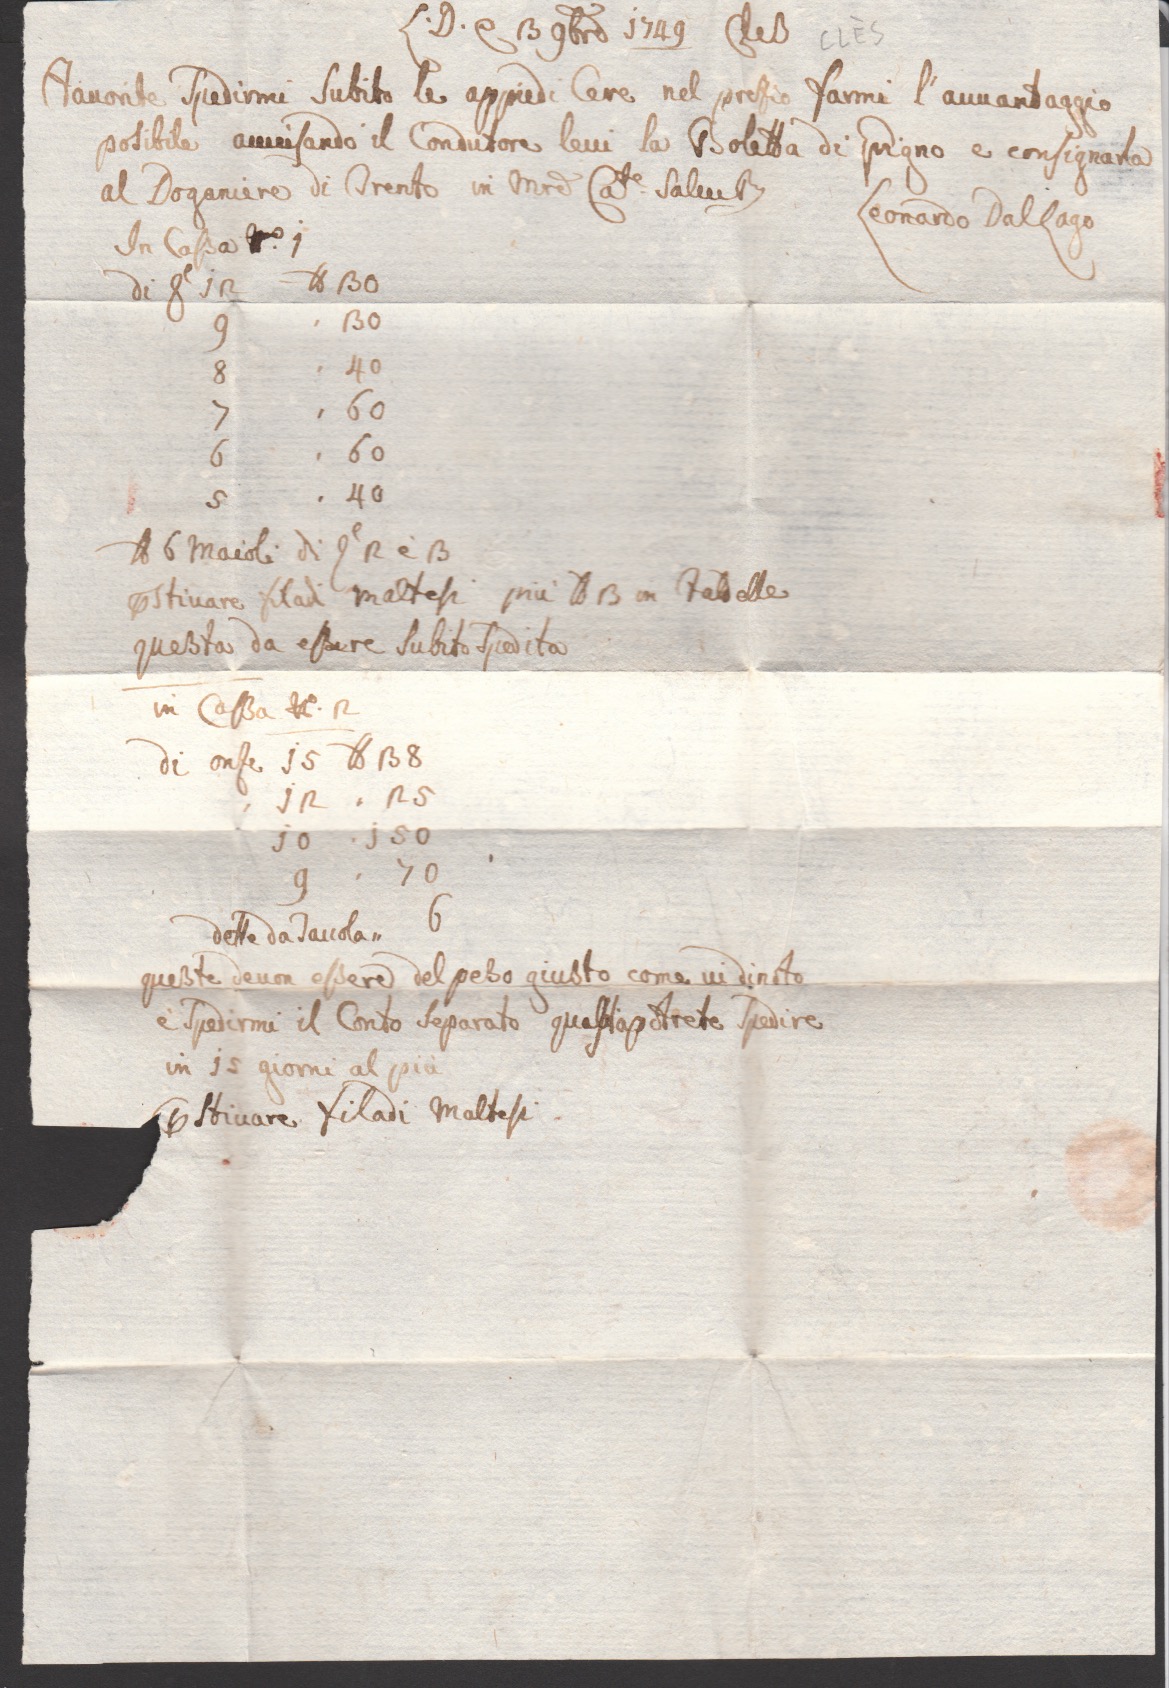 L. D. e 3 9bre 1749 Cles CLÈS
Fauorite Spedirmi Subito le appiedi Cere nel pressio farmi l'auuantaggio
posibile auuisando il Condutore leui la Boletta di pigno e consignarla
al Doganiere di Trento in Salut
Leonardo Dal Lago
In Cassa N.º 1
di 12 ℔ 30
9 " 30
8 " 40
7 " 60
6 " 60
5 " 40
℔ 6 Maioli di 2 è 3
Stiuare filadi Maltesi più ℔ 3 in
questa da essere Subito Spedita
in Cassa Nº. 2
di onse 15 ℔ 38
" 12 " 25
10 " 150
9 " 70
dette da Tauola " 6
queste deuon essere del peso giusto come ui dinoto
è Spedirmi il Conto Separato questa potrete Spedire
in 15 giorni al più
Stiuare filadi Maltesi